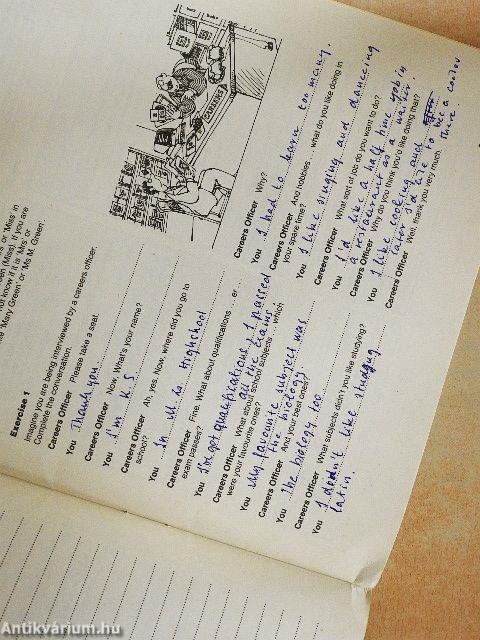 or 'Miss' in
(Miss). If you are
not know if it is 'Mrs' or
'Mary Green' or 'Ms M. Green'.
Exercise 1
Imagine you are being interviewed by a careers officer.
Complete the conversation.
Careers Officer Please take a seat.
You Thank you.
Careers Officer Now. What's your name?
You I'm K.S.
Careers Officer Ah, yes. Now, where did you go to
school?
You In to Highshool
Careers Officer Fine. What about qualifications ... er
exam passes?
You I've got qualifications, I passed
all the exams.
Careers Officer What about school subjects ... which
were your favourite ones?
You My favourite subject was
the biology
Careers Officer And your best ones?
You the biology too
Careers Officer What subjects didn't you like studying?
You I didn't like
latin.
CAREERS
Careers Officer Why?
You I had to learn too many.
Careers Officer And hobbies ... what do you like doing in
your spare time?
You I like singing and dancing
Careers Officer What sort of job do you want to do?
You I'd like a half time job in
a restaurant as a waiter.
Careers Officer Why do you think you'd like doing that?
You I like cooking and
later I'd like to be a
there.
Careers Officer Well, thank you very much.
Antikvárium.hu